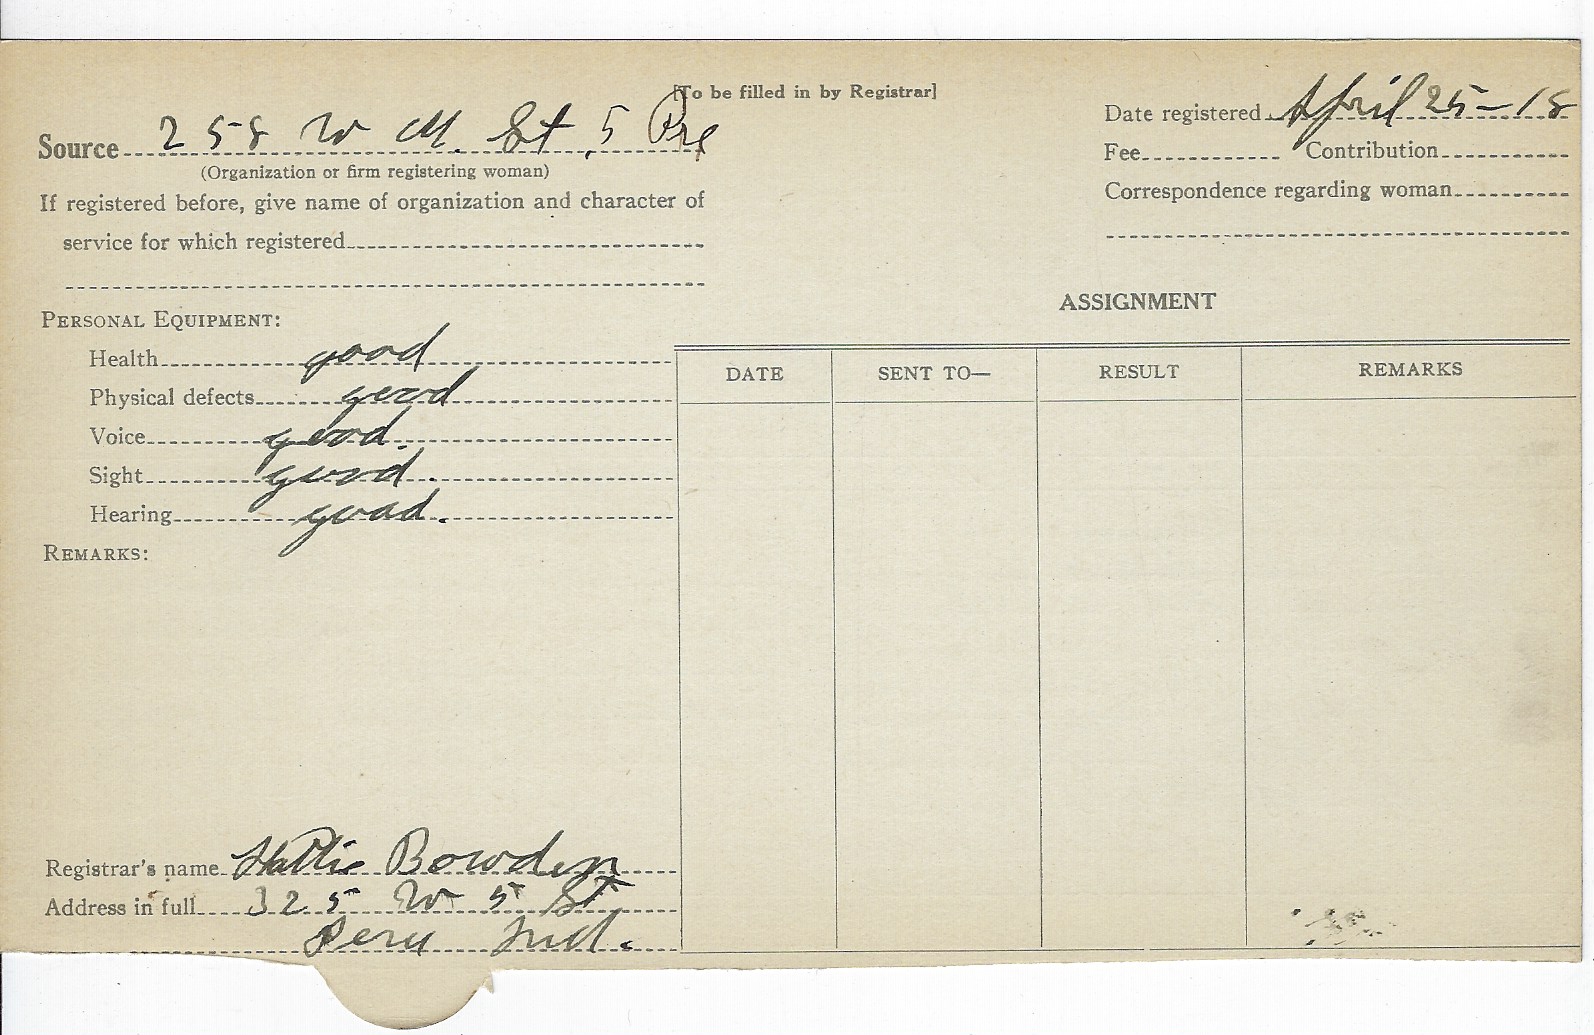 [To be filled in by Registrar]
Source 258 W M. St, 5 Pre
(Organization or firm registering woman)
If registered before, give name of organization and character of
service for which registered
Date registered April 25-18
Fee Contribution
Correspondence regarding woman
PERSONAL EQUIPMENT:
Health good
Physical defects good
Voice good.
Sight good.
Hearing good.
REMARKS:
Registrar's name Hattie Bowden
Address in full 325 W 5 St
Peru Ind.
ASSIGNMENT
DATE SENT TO— RESULT REMARKS